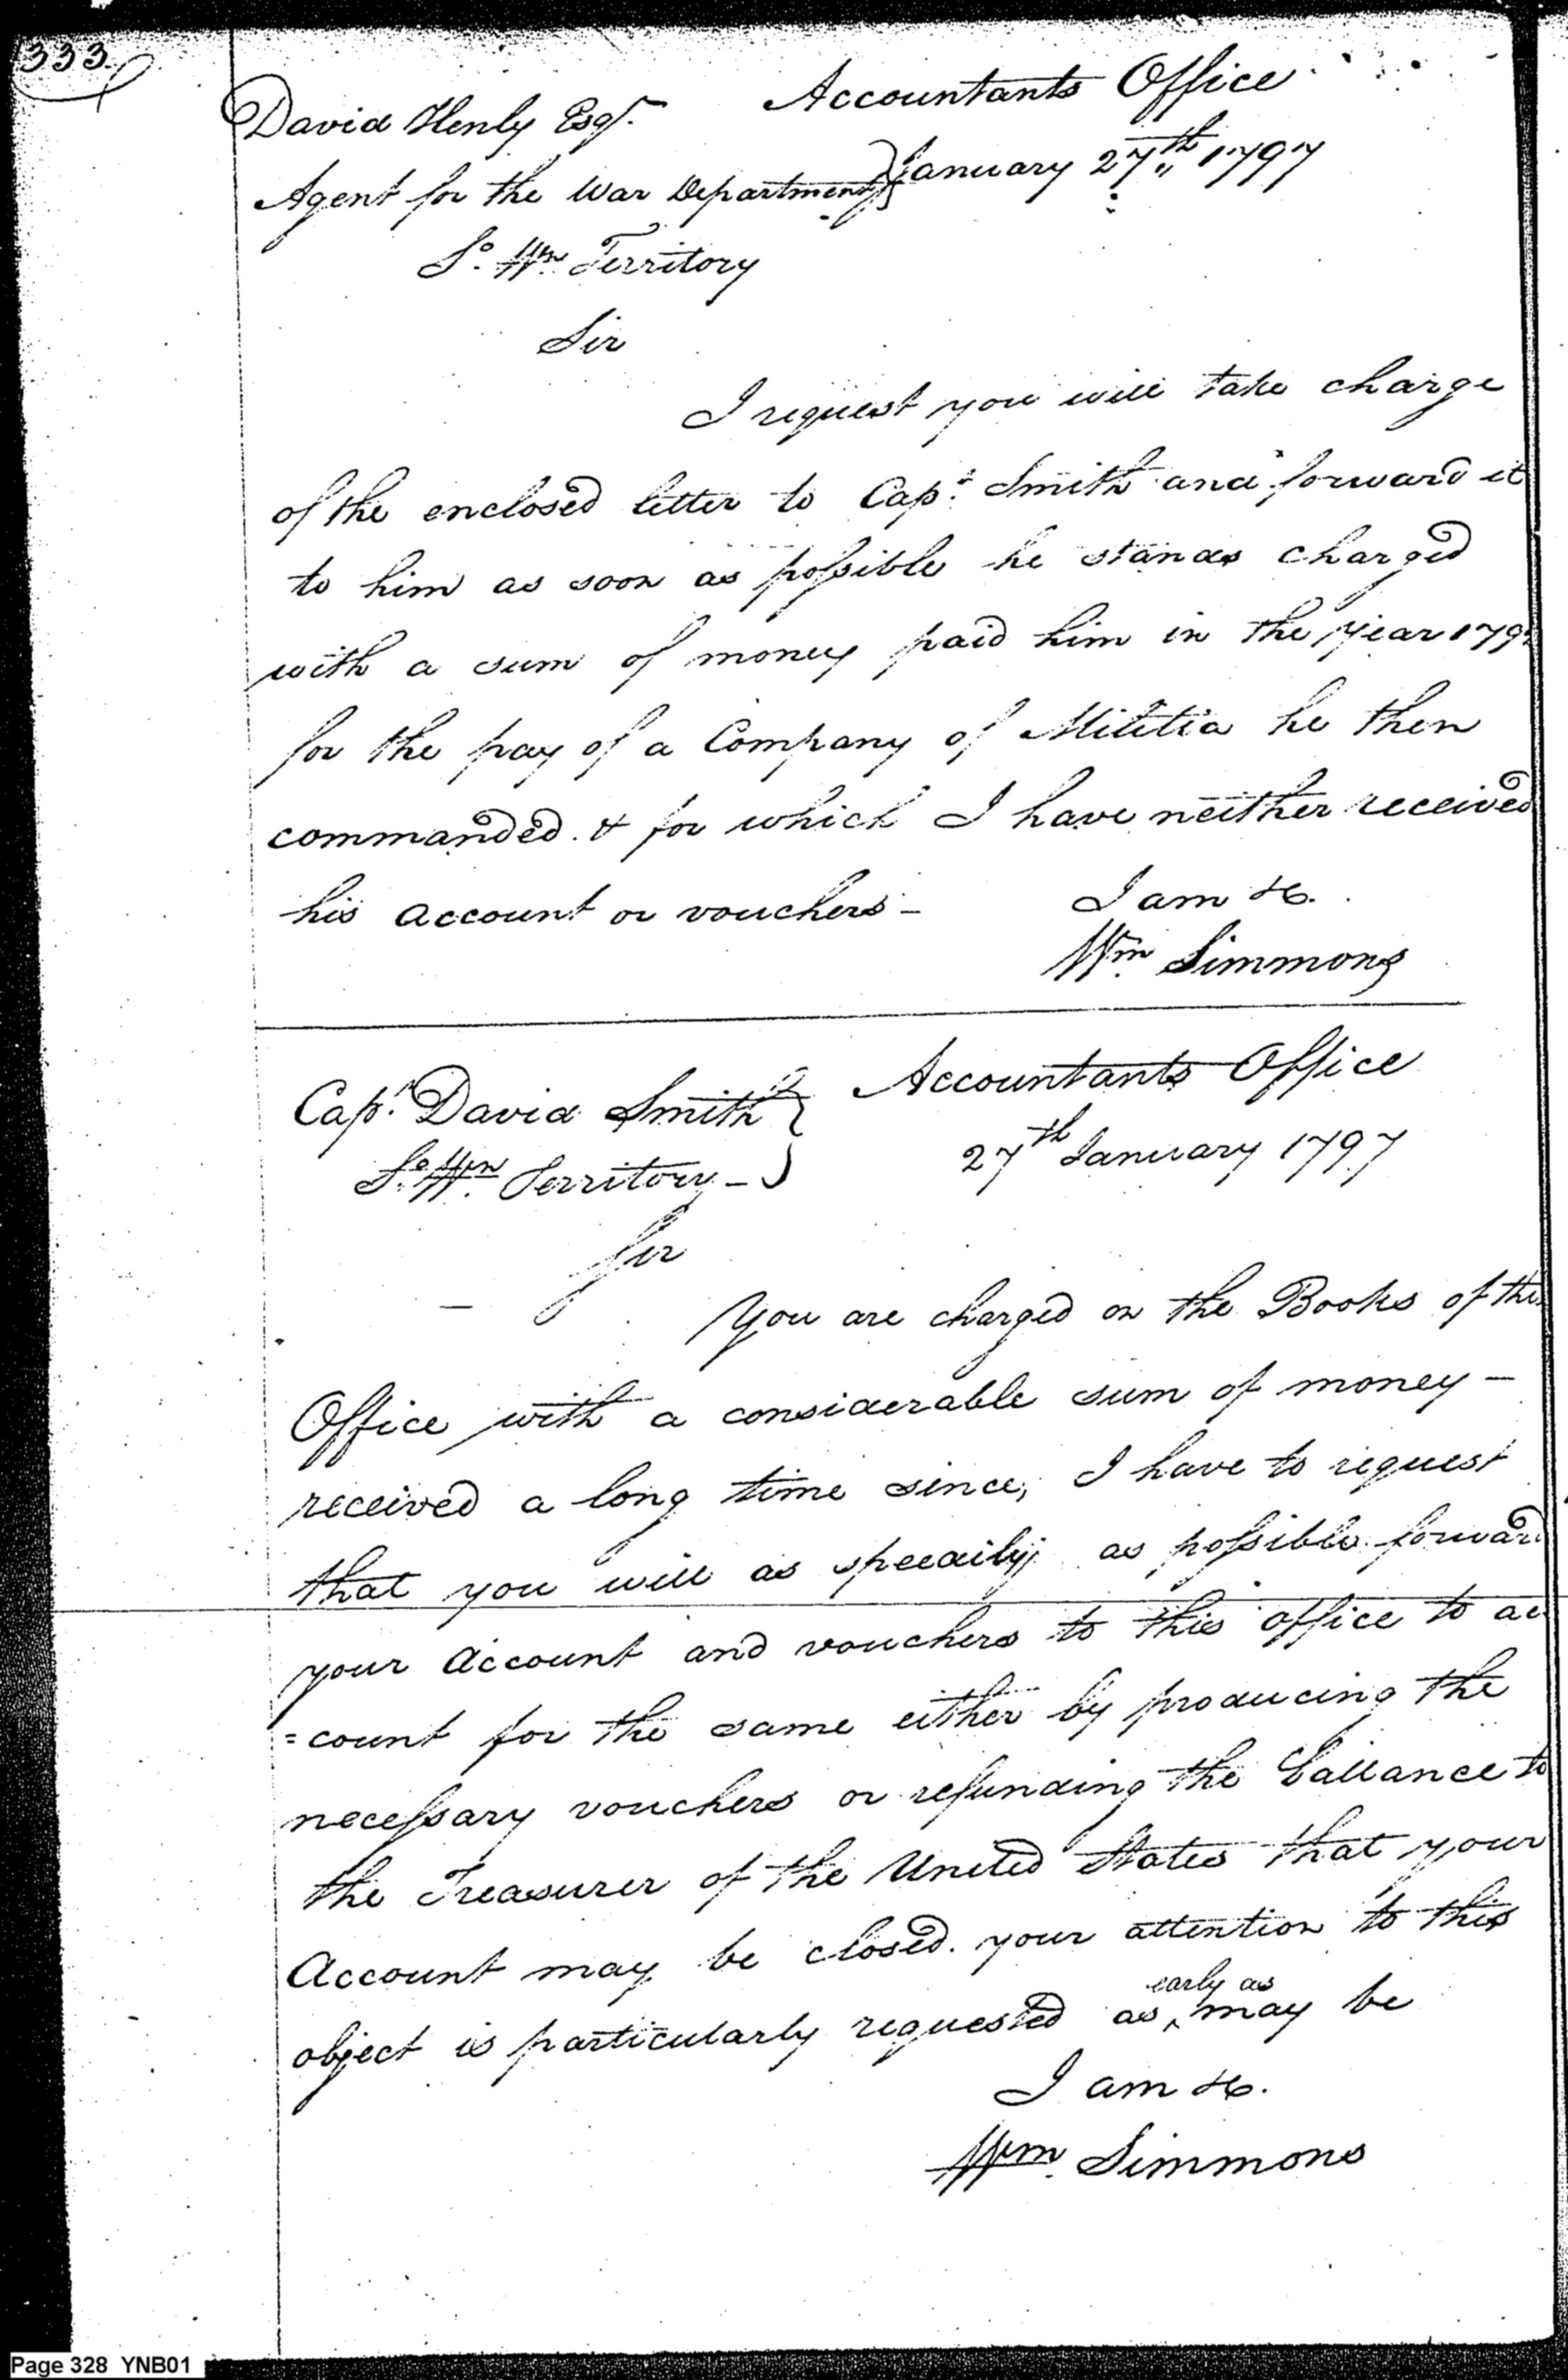 333
Accountants Office
David Henly Esqr.
January 27th 1797
Agent for the War Department
So. Wn. Territory
Sir
I request you will take charge
of the enclosed letter to Capt. Smith and forward it
to him as soon as possible he stands charged
with a sum of money paid him in the year
for the pay of a Company of Militia he then
commanded. & for which I have neither received
his account or vouchers -
I am &c.
Wm. Simmons
Accountants Office
Capt. David Smith
27th January 1797
So. Wn. Territory -
Sir
You are charged on the Books of this
Office with a considerable sum of money -
received a long time since, I have to request
that you will as speedily as possible forward
your account and vouchers to this office to ac
=count for the same either by producing the
necessary vouchers or refunding the Ballance to
the Treasurer of the United States that your
Account may be closed. your attention to this
early as
object is particularly requested as ^ may be
I am &c.
Wm. Simmons
Page 328 YNB01